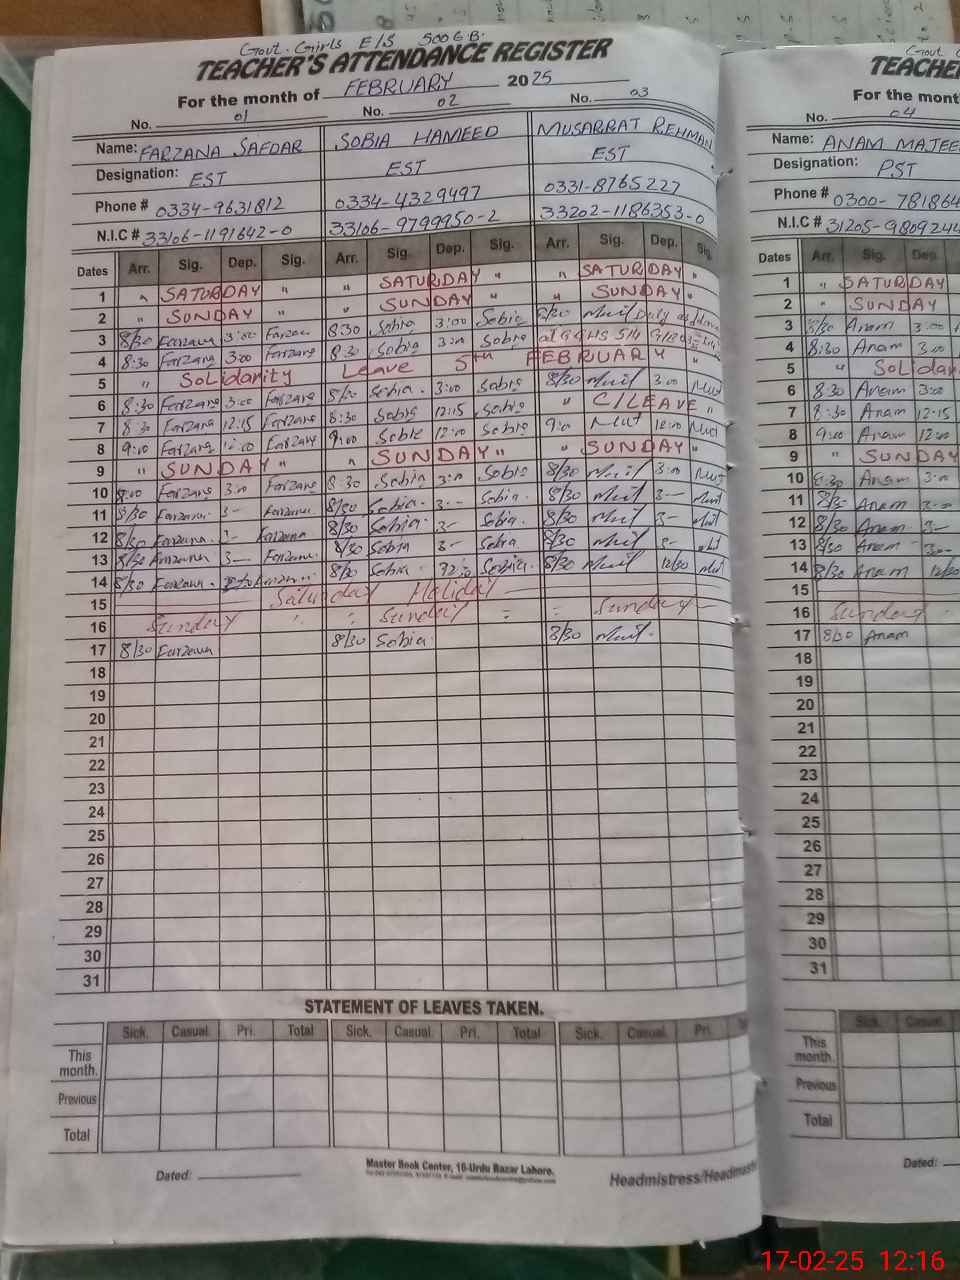 Govt. Girls E/S 500 G.B.
TEACHER'S ATTENDANCE REGISTER
For the month of FEBRUARY 2025
No. 01 No. 02 No. 03
Name: FARZANA SAFDAR SOBIA HAMEED MUSARRAT REHMAN
Designation: EST EST EST
Phone # 0334-9631812 0334-4329497 0331-8765227
N.I.C # 33106-1191642-0 33106-9799950-2 33202-1186353-0
Dates Arr. Sig. Dep. Sig. Arr. Sig. Dep. Sig. Arr. Sig. Dep. Sig.
1 " SATURDAY " " SATURDAY " " SATURDAY "
2 " SUNDAY " " SUNDAY " " SUNDAY "
3 8/30 Farzana 3:00 Farzan 8:30 Sobia 3:00 Sobia 8/30
4 8:30 Farzana 3:00 Farzana 8:30 Sobia 3:00 Sobia
5 " Solidarity Leave 5th FEBRUARY "
6 8:30 Farzana 3:00 Farzana 8/30 Sobia. 3:00 Sobia 8/30 3:00
7 8:30 Farzana 12:15 Farzana 8:30 Sobia 12:15 Sobia " C/LEAVE "
8 9:00 Farzana 12:00 Farzana 9:00 Sobia 12:00 Sobia 9:00 12:00
9 " SUNDAY " " SUNDAY " " SUNDAY "
10 8:00 Farzana 3:00 Farzana 8:30 Sobia 3:00 Sobia 8/30 3:00
11 8/30 Farzana. 3- Farzana. 8/30 Sobia. 3- Sobia. 8/30 3-
12 8/30 Farzana. 3- Farzana 8/30 Sobia. 3- Sobia. 8/30 3-
13 8/30 Farzana 3- Farzana. 8/30 Sobia 3- Sobia 8/30 3-
14 8/30 Farzana. Farzana. 8/30 Sobia. Sobia. 8/30 12/30
15 Saturday Holiday
16 Sunday Sunday Sunday
17 8/30 Farzana 8/30 Sobia 8/30
18
19
20
21
22
23
24
25
26
27
28
29
30
31
STATEMENT OF LEAVES TAKEN.
Sick. Casual. Pri. Total Sick. Casual. Pri. Total Sick. Casual. Pri.
This month.
Previous
Total
Dated:
Master Book Center, 16-Urdu Bazar Lahore.
Headmistress/Headmast
Govt
TEACHE
For the mont
No. 04
Name: ANAM MAJEE
Designation: PST
Phone # 0300-781864
N.I.C # 31205-9809244
Dates Arr. Sig. Dep.
1 " SATURDAY
2 " SUNDAY
3 8/30 Anam 3:00
4 8:30 Anam 3:00
5 " Solidari
6 8:30 Anam 3:00
7 8:30 Anam 12:15
8 9:00 Anam 12:00
9 " SUNDAY
10 8:30 Anam 3:00
11 8/30 Anam 3:00
12 8/30 Anam 3-
13 8/30 Anam 3:00
14 8/30 Anam 12/30
15
16 Sunday
17 8/30 Anam
18
19
20
21
22
23
24
25
26
27
28
29
30
31
Sick. Casual.
This month.
Previous
Total
Dated:
17-02-25 12:16